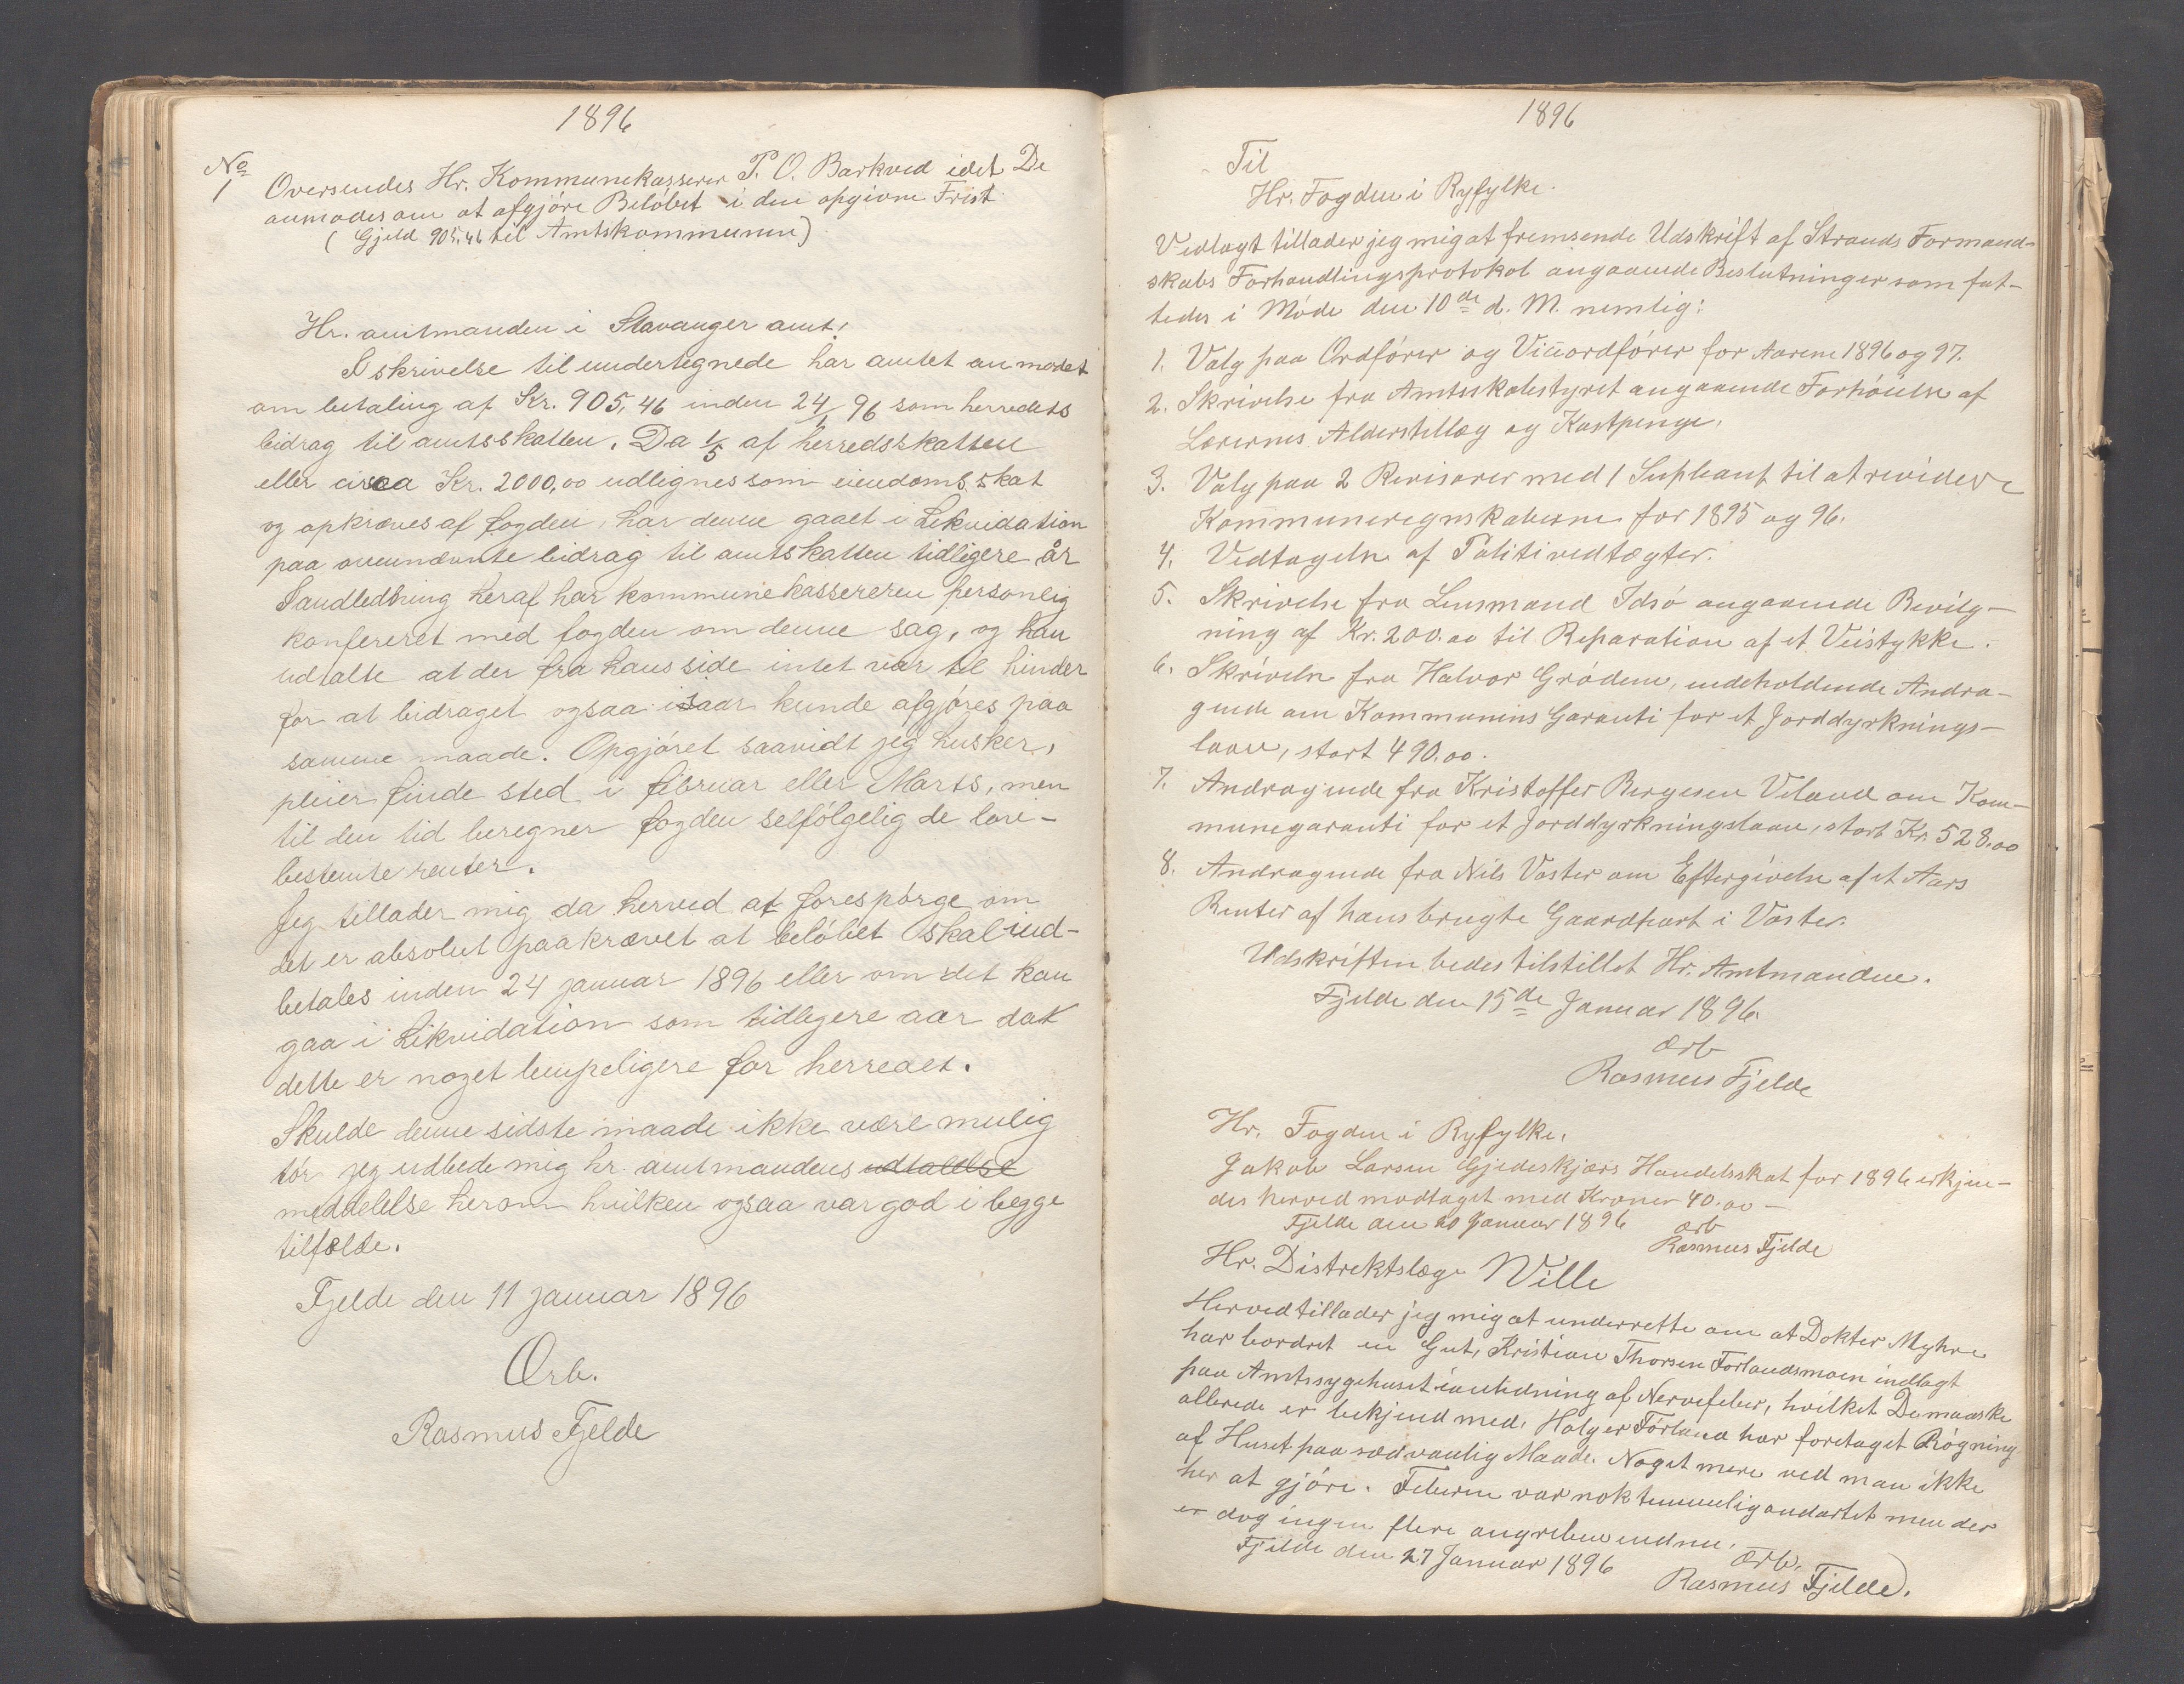 1896
No
1 Oversendes Hr. Kommunekasserer P. O. Barkved idet De
anmodes om at afgjøre Beløbet i den opgivne Frist
(Gjeld 905,46 til Amtskommunen)
Hr. amtmanden i Stavanger amt,
I skrivelse til undertegnede har amtet anmodet
om betaling af Kr. 905,46 inden 24/1 96 som herredets
bidrag til amtsskatten. Da 1/5 af herredsskatten
eller circa Kr. 2000,00 udlignes som eiendomsskat
og opkræves af fogden, har denne gaaet i Likvidation
paa ovennævnte bidrag til amtskatten tidligere år
I andledning heraf har kommunekassereren personlig
konfereret med fogden om denne sag, og han
udtalte at der fra hans side intet var til hinder
for at bidraget ogsaa i aar kunde afgjøres paa
samme maade. Opgjøret saavidt jeg husker,
pleier finde sted i februar eller Marts, men
til den tid beregner fogden selfølgelig de lov-
bestemte renter.
Jeg tillader mig da herved at forespørge om
det er absolut paakrævet at beløbet skal ind-
betales inden 24 januar 1896 eller om det kan
gaa i Likvidation som tidligere aar da
dette er noget lempeligere for herredet.
Skulde denne sidste maade ikke være mulig
tør jeg udbede mig hr. amtmandens udtalelse
meddelelse herom hvilken ogsaa var god i begge
tilfælde.
Fjelde den 11 januar 1896
Ærb.
Rasmus Fjelde
1896
Til
Hr. Fogden i Ryfylke.
Vedlagt tillader jeg mig at fremsende Udskrift af Strands Formand-
skabs Forhandlingsprotokol angaaende Beslutninger som fat-
tedes i Møde den 10de d. M. nemlig:
1. Valg paa Ordfører og Viceordfører for Aarene 1896 og 97.
2. Skrivelse fra Amtsskolestyret angaaende Forhøielse af
Lærernes Alderstillæg og Kostpenge.
3. Valg paa 2 Revisorer med 1 Supleant til at revidere
Kommuneregnskaberne for 1895 og 96.
4. Vedtagelse af Politivedtægter.
5. Skrivelse fra Lensmand Idsø angaaende Bevilg-
ning af Kr. 200.00 til Reparation af et Veistykke.
6. Skrivelse fra Halvor Grødem, indeholdende Andra-
gende om Kommunens Garanti for et Jorddyrknings-
laan, stort 490.00.
7. Andragende fra Kristoffer Bergesen Veland om Kom-
munegaranti for et Jorddyrkningslaan, stort Kr. 528.00
8. Andragende fra Nils Voster om Eftergivelse af et Aars
Renter af hans brugte Gaardpart i Voster.
Udskriften bedes tilstillet Hr. Amtmanden.
Fjelde den 15de Januar 1896.
Ærb
Rasmus Fjelde
Hr. Fogden i Ryfylke.
Jakob Larsen Gjedeskjærs Handelsskat for 1896 erkjen-
des herved modtaget med Kroner 40.00 -
Fjelde den 20 Januar 1896
Ærb
Rasmus Fjelde
Hr. Distriktslæge Wille
Herved tillader jeg mig at underrette om at Dokter Myhre
har bordret en Gut, Kristian Thorsen Førlandsmoen indlagt
paa Amtssygehuset i anledning af Nervefeber, hvilket De maaske
allerede er bekjend med. Holger Førland har foretaget Røgning
af Huset paa sædvanlig Maade. Noget mere ved man ikke
her at gjøre. Feberen var nok temmelig ondartet men der
er dog ingen flere angreben endnu.
Fjelde den 27 Januar 1896
Ærb.
Rasmus Fjelde.